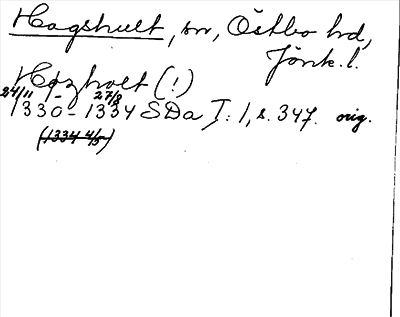 Hagshult, sn, Östbo hd,
Jönk. l.
Hozholt (!)
24/11 27/8
1330 - 1334 SDa I: 1, s. 347. orig.
(1334 4/5)